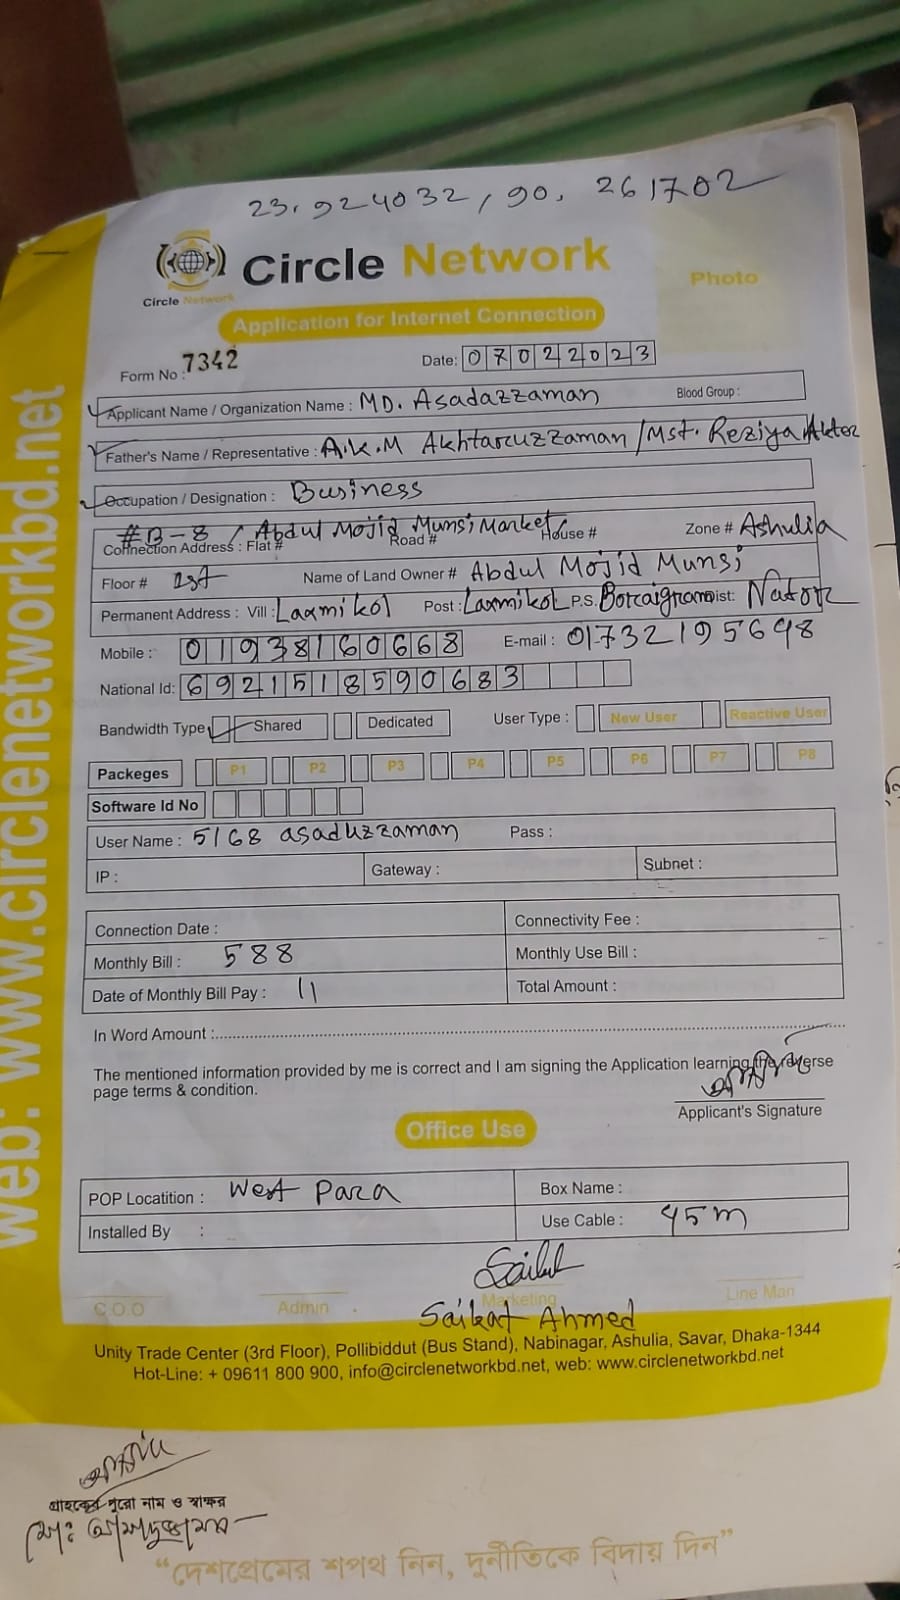 23.924032, 90.261702
Circle Network
Circle Network
Photo
Application for Internet Connection
Form No : 7342
Date: 07022023
Applicant Name / Organization Name : MD. Asadazzaman Blood Group :
Father's Name / Representative : A.K.M Akhtaruzzaman / Mst. Reziya Akter
Occupation / Designation : Business
#B-8 / Abdul Mojid Munsi Market
Connection Address : Flat # Road # House # Zone # Ashulia
Floor # 1st Name of Land Owner # Abdul Mojid Munsi
Permanent Address : Vill : Laxmikol Post : Laxmikol P.S. Boraigram Dist: Nator
Mobile : 01938160668 E-mail : 01732195698
National Id: 6921518590683
Bandwidth Type Shared Dedicated User Type : New User Reactive User
Packeges P1 P2 P3 P4 P5 P6 P7 P8
Software Id No
User Name : 5168 asaduzzaman Pass :
IP : Gateway : Subnet :
Connection Date : Connectivity Fee :
Monthly Bill : 588 Monthly Use Bill :
Date of Monthly Bill Pay : 11 Total Amount :
In Word Amount :
The mentioned information provided by me is correct and I am signing the Application learning the reverse
page terms & condition.
Applicant's Signature
Office Use
POP Locatition : West Para Box Name :
Installed By : Use Cable : 45m
C.O.O Admin Marketing Line Man
Saikat Ahmed
Unity Trade Center (3rd Floor), Pollibiddut (Bus Stand), Nabinagar, Ashulia, Savar, Dhaka-1344
Hot-Line: + 09611 800 900, info@circlenetworkbd.net, web: www.circlenetworkbd.net
web: www.circlenetworkbd.net
গ্রাহকের পুরো নাম ও স্বাক্ষর
মোঃ আসাদুজ্জামান
“দেশপ্রেমের শপথ নিন, দুর্নীতিকে বিদায় দিন”